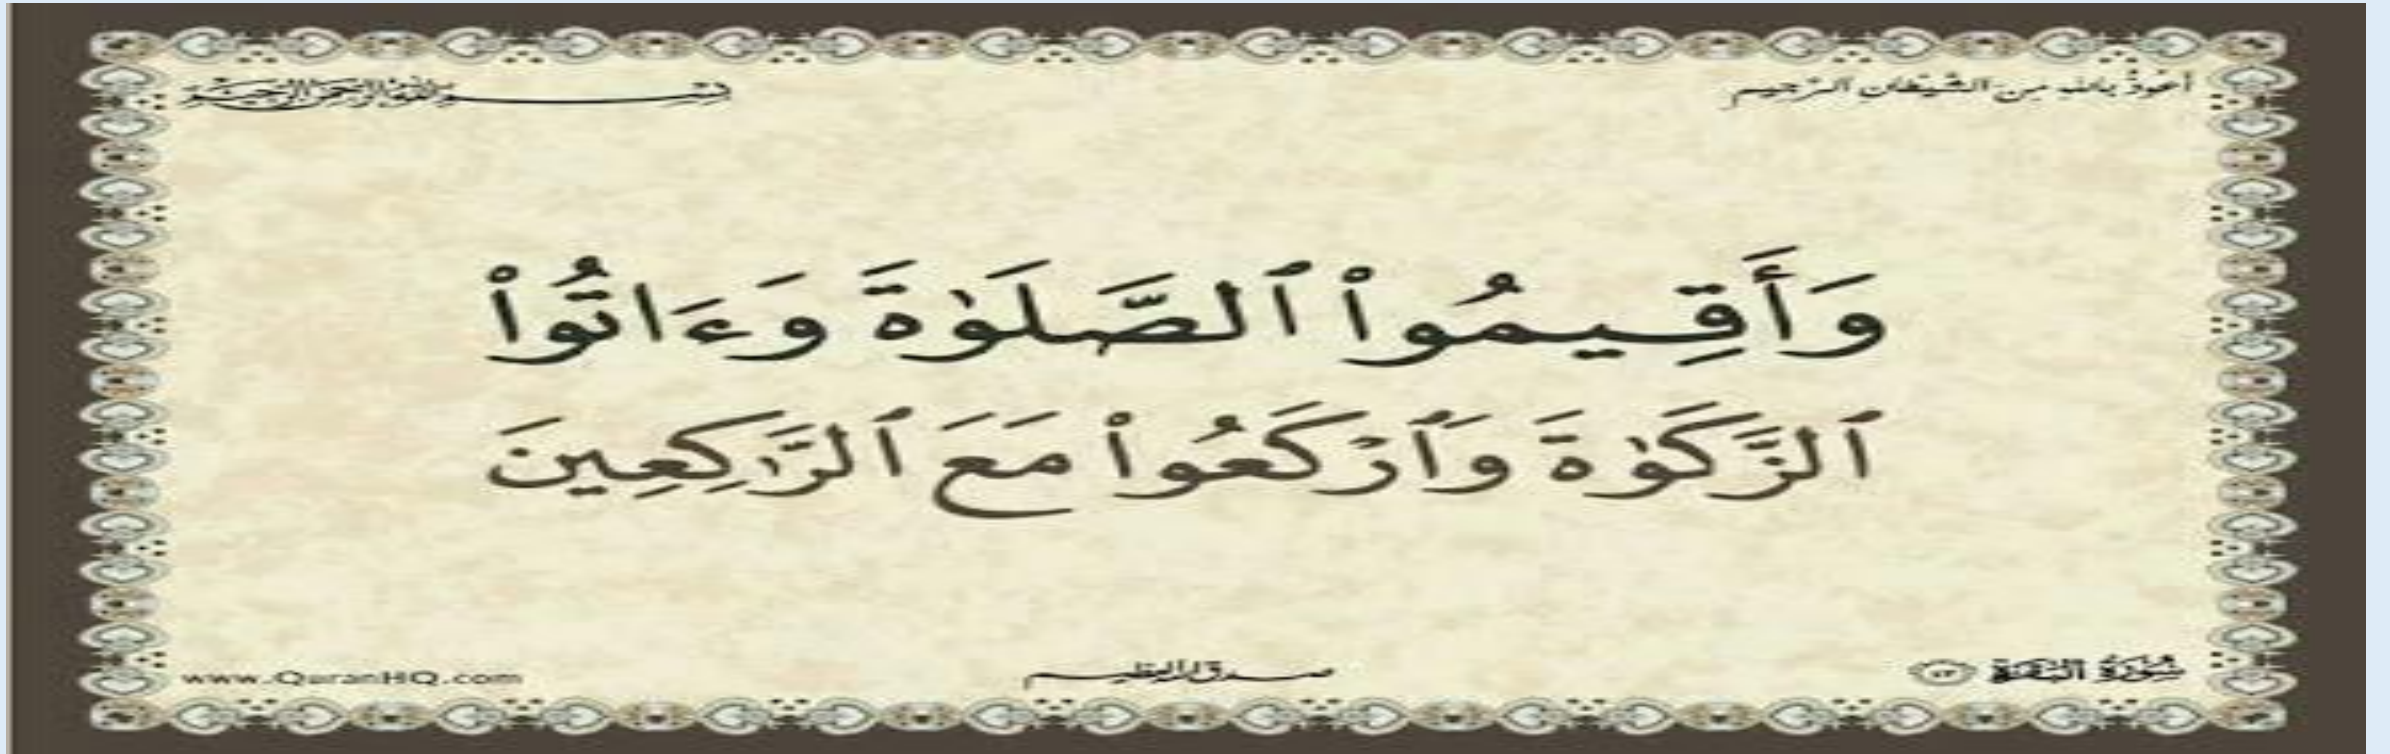 أعوذ بالله من الشيطان الرجيم
بسم الله الرحمن الرحيم
وَأَقِيمُوا۟ ٱلصَّلَوٰةَ وَءَاتُوا۟
ٱلزَّكَوٰةَ وَٱرْكَعُوا۟ مَعَ ٱلرَّٰكِعِينَ
سُورَةُ البَقَرَة
صدق الله العظيم
www.QuranHQ.com